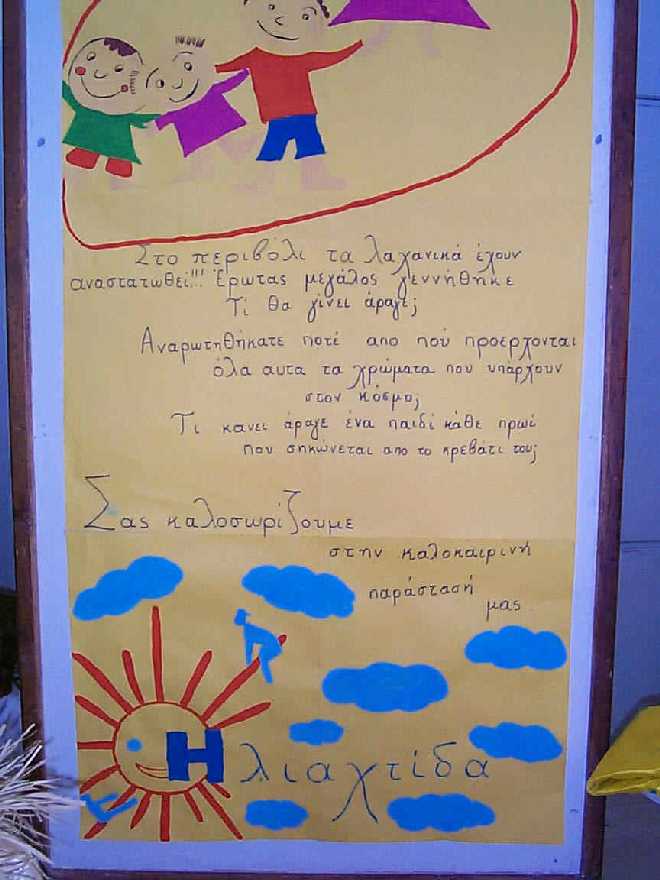 Στο περιβόλι τα λαχανικά έχουν
αναστατωθεί!!! Έρωτας μεγάλος γεννήθηκε
Τι θα γίνει άραγε;
Αναρωτηθήκατε ποτέ απο πού προέρχονται
όλα αυτα τα χρώματα που υπάρχουν
στον κόσμο;
Τι κανει άραγε ένα παιδί κάθε πρωί
που σηκώνεται απο το κρεβάτι του;
Σας καλοσωρίζουμε
στην καλοκαιρινή
παράστασή
μας
Ηλιαχτίδα